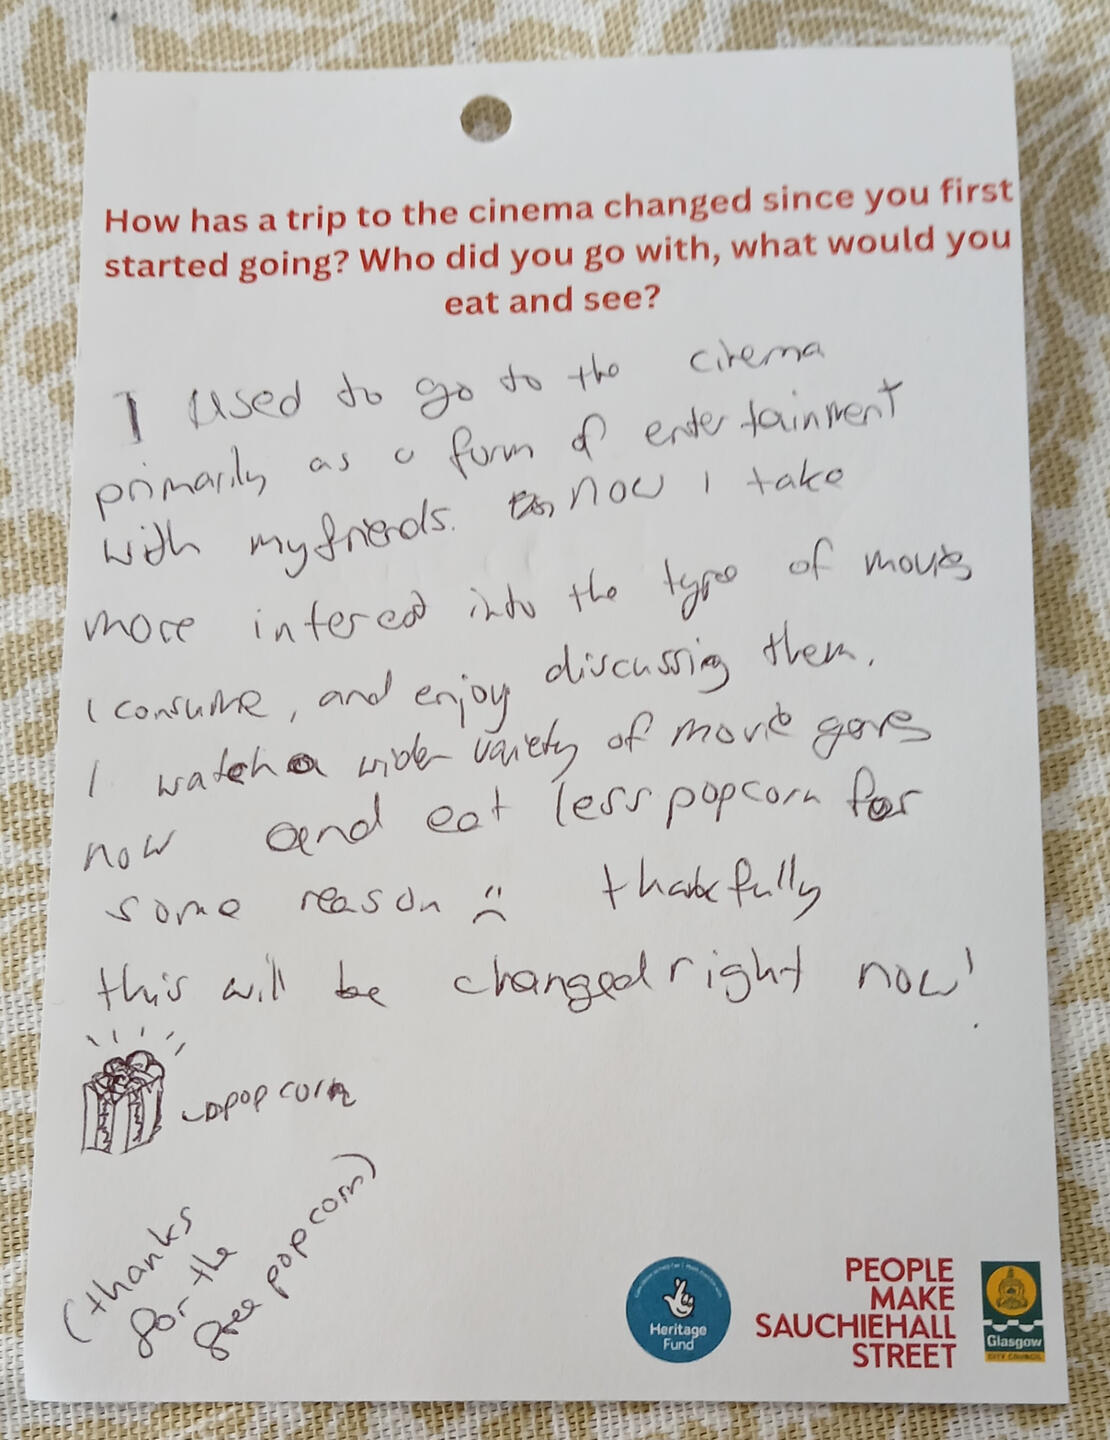 How has a trip to the cinema changed since you first
started going? Who did you go with, what would you
eat and see?
I used to go to the cinema
primarily as a form of entertainment
with my friends. now I take
more intered into the type of movies
I consume, and enjoy discussing them.
I watch a wider variety of movie genres
now and eat less popcorn for
some reason :( thankfully
this will be changed right now!
popcorn
(thanks
for the
free popcorn)
Heritage
Fund
PEOPLE
MAKE
SAUCHIEHALL
STREET
Glasgow
CITY COUNCIL